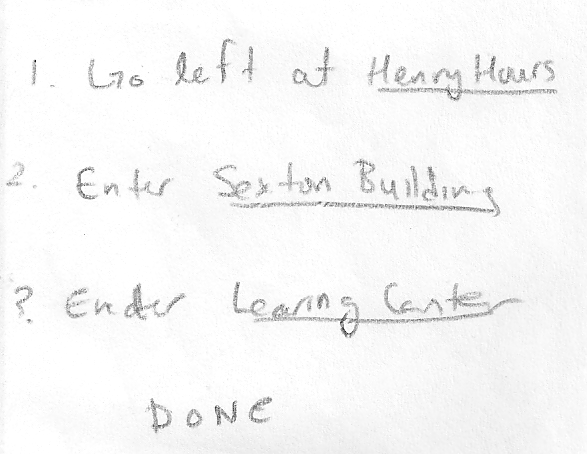 1. Go left at Henry Hours
2. Enter Sexton Building
3. Ender Learing Center
DONE